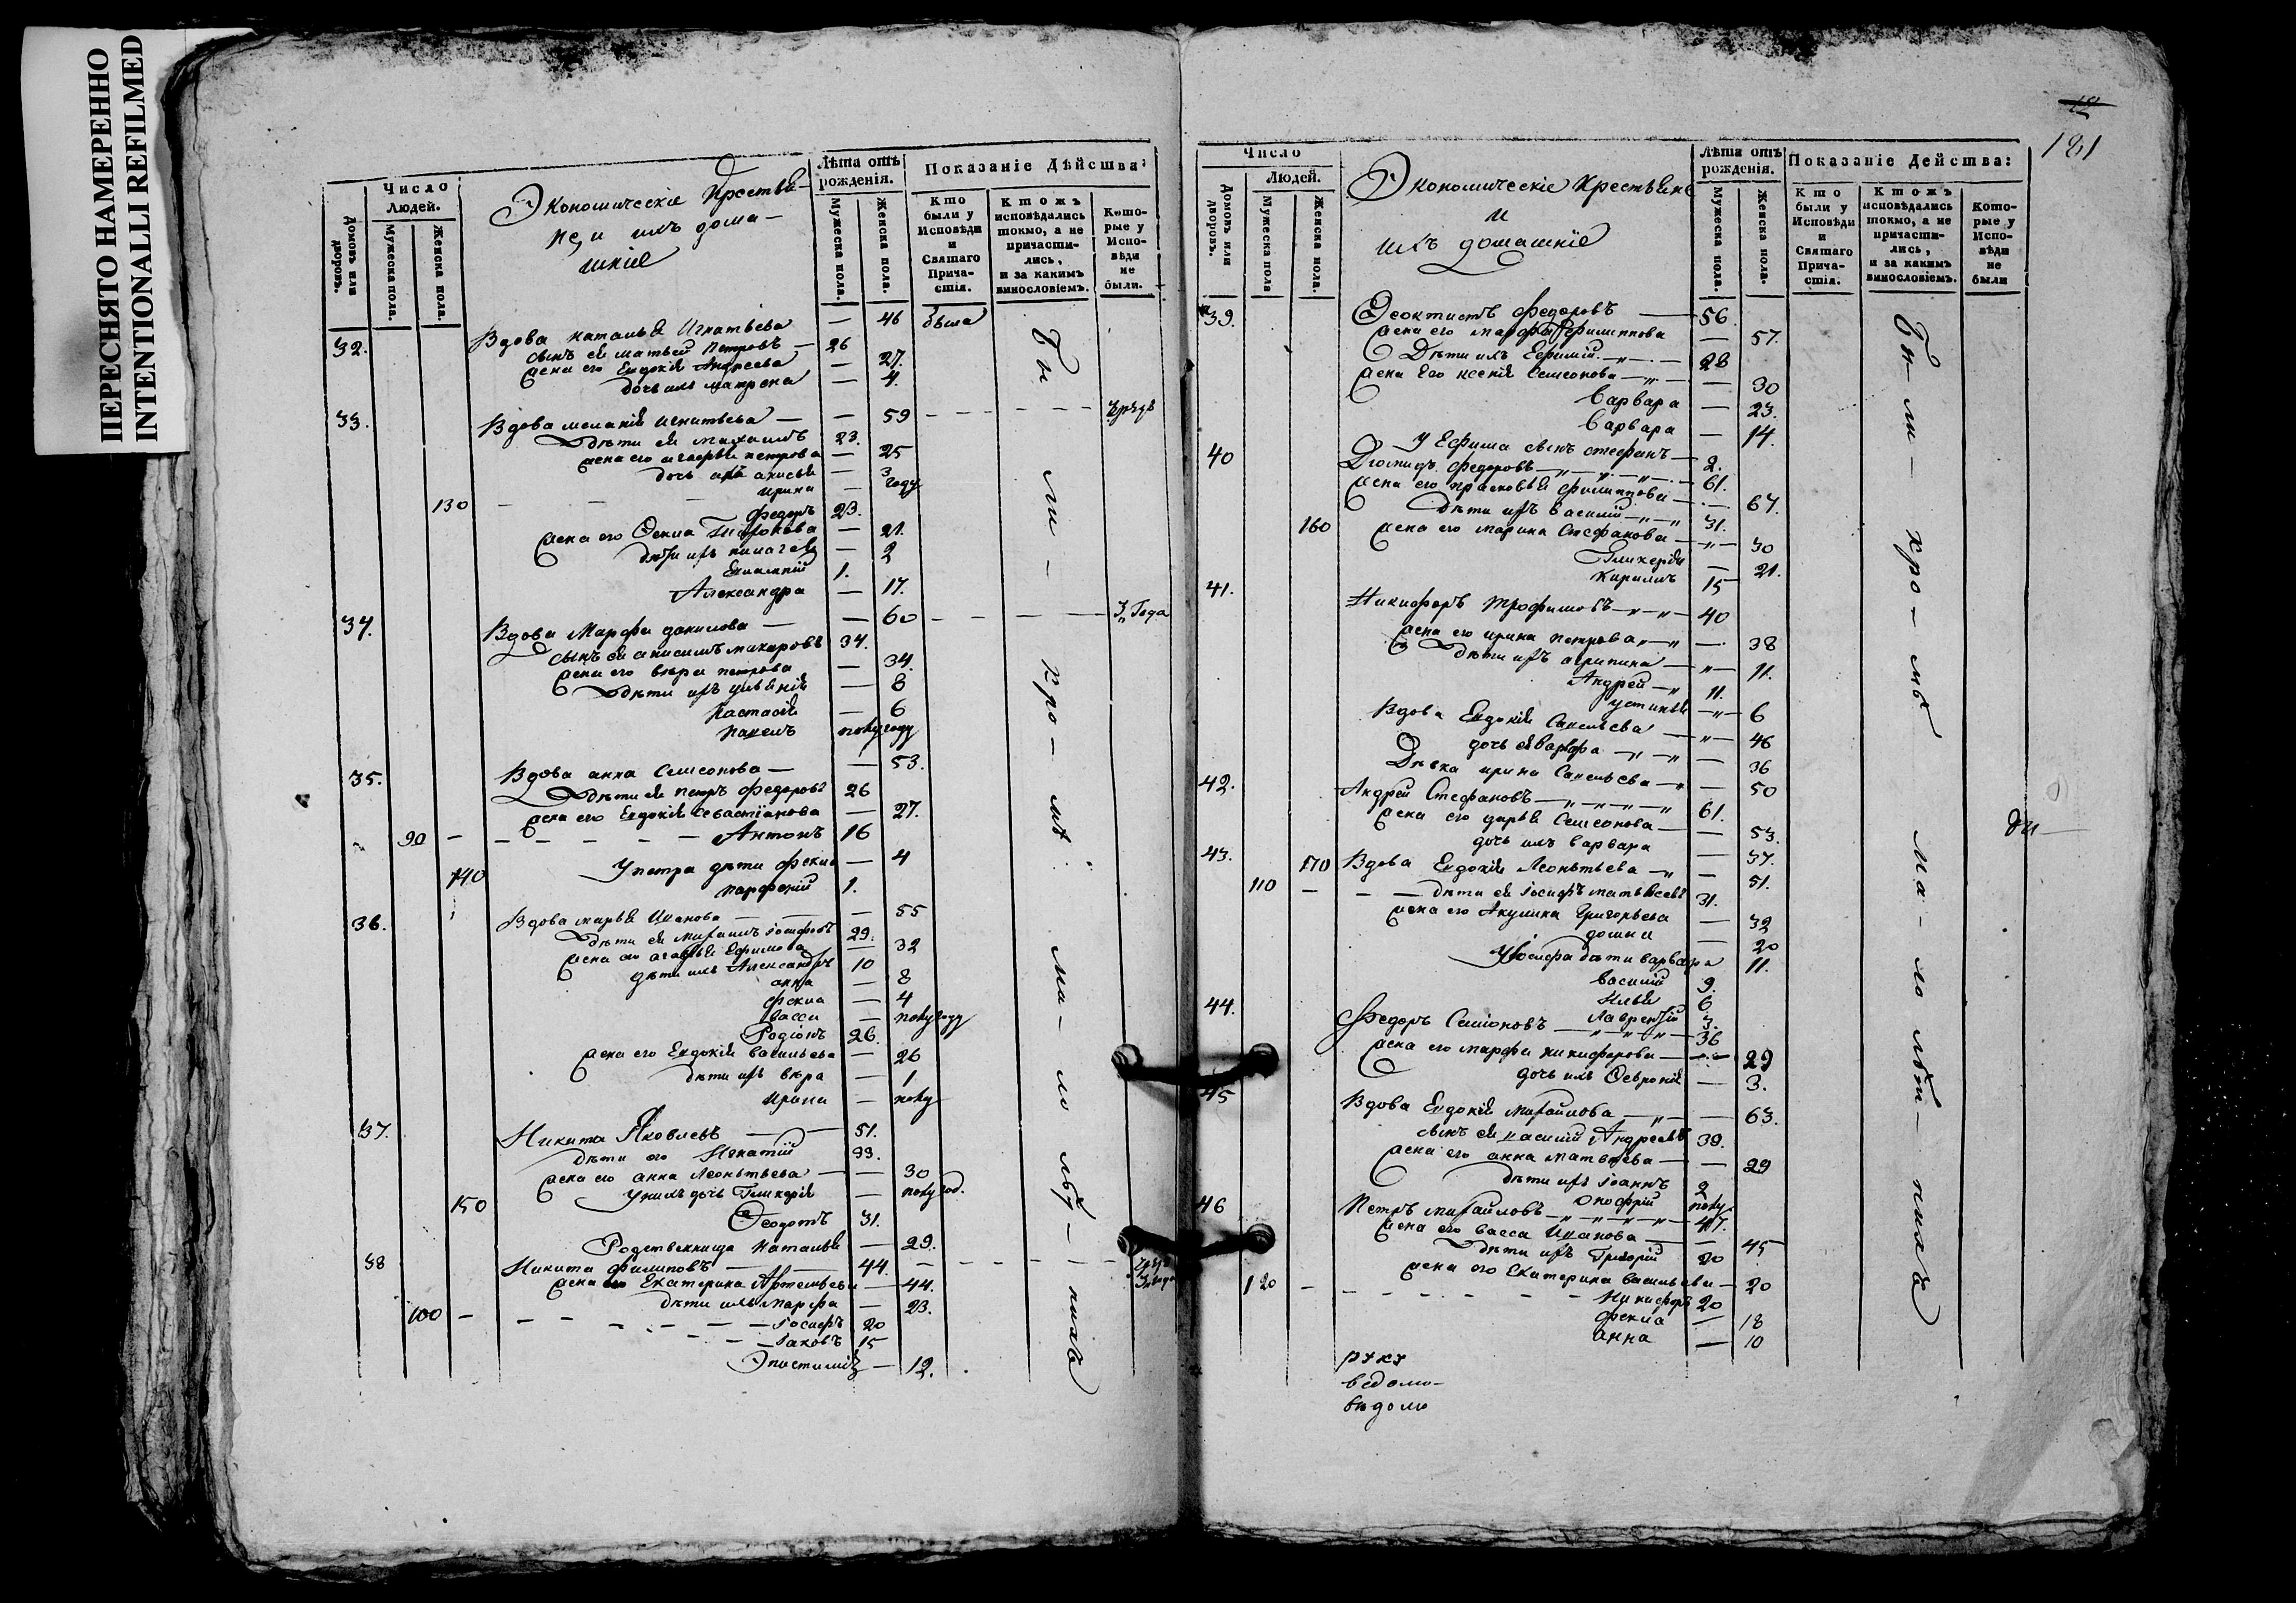 ПЕРЕСНЯТО НАМЕРЕННО
INTENTIONALLI REFILMED
Число
Людей.
Домовъ или дворовъ.
Мужеска пола.
Женска пола.
Экономическіе Крестья-
не, и ихъ дома-
шніе
Лѣта отъ рожденія.
Мужеска пола.
Женска пола.
Показаніе Дѣйства:
Кто были у Исповѣди и Святаго Прича-стія.
Ктожъ исповѣдались токмо, а не причасти-лись, и за какимъ винословіемъ.
Кото-рые у Испо-вѣди не были.
32. Вдова Наталья Игнатьева — 46 была
сынъ ея Матвей Петровъ — 26
жена его Евдокія Андреева — 27.
дочь ихъ Матрена — 4.
33. Вдова Меланія Игнатьева — 59
дѣти ея Михаилъ 23.
жена его Петрова — 25
дочь ихъ Анисья — 3
Ирина — году
130 Федоръ 23.
жена его Фекла — 21.
дѣти ихъ — 2
1.
Александра — 17.
34. Вдова Марфа Данилова — 60 3 Года
сынъ ея Анисимъ Макаровъ 34.
жена его Вера Петрова — 34.
дѣти ихъ Ульянія — 8
Настасія — 6
Павелъ полугоду
35. Вдова Анна Семеонова — 53.
дѣти ея Петръ Федоровъ 26
жена его Евдокія Севастіанова — 27.
90 Антонъ 16
У Петра дѣти Фекла — 4
140 Парфеній 1.
36. Вдова Марья Иванова — 55
дѣти ея Михаилъ Іосифовъ 29.
жена его Агафья Ефимова — 32
дѣти ихъ Александръ 10
Анна — 8
Фекла — 4
Васса — полугоду
Родіонъ 26.
жена его Евдокія Васильева — 26
дѣти ихъ Вѣра — 1
Ирина — полу
37. Никита Яковлевъ — 51.
дѣти его Игнатій 33.
жена его Анна Леонтьева — 30
150 У нихъ дочь Гликерія — полугод.
Феодотъ 31.
Родственница Наталья — 29.
38 Никита Филиповъ — 44.
жена его Екатерина Артемьева — 44.
дѣти ихъ Марфа — 23.
100 Іосифъ 20
Іаковъ 15
Эпистимія — 12.
Бы ли — кро — мѣ ма — ло лѣт — нихъ
181
Число
Людей.
Домовъ или дворовъ.
Мужеска пола
Женска пола.
Экономическіе Крестьяне
и
ихъ домашніе
Лѣта отъ рожденія.
Мужеска пола.
Женска пола.
Показаніе Дейсшва:
Кто были у Исповѣди и Святаго Прича-стія.
Ктожъ исповѣдались токмо, а не причасти-лись, и за какимъ винословіемъ.
Кото-рые у Испо-вѣди не были
39. Феоктистъ Федоровъ — 56
жена его Марфа Филиппова — 57.
Дѣти ихъ Ефимій 28
жена его Ксенія Семеонова — 30
Варвара — 23.
Варвара — 14.
У Ефима сынъ Стефанъ — 2.
40 Диомидъ Федоровъ — 61.
жена его Прасковья Филиппова — 67.
дѣти ихъ Василій — 31.
160 жена его Марина Стефанова — 30
Гликерія — 21.
Кирилъ 15
41. Никифоръ Трофимовъ — 40
жена его Ирина Петрова — 38
дѣти ихъ Агрипина — 11.
Андрей — 11.
Устинья — 6
Вдова Евдокія Савельева — 46
дочь ея — 36
Дѣвка Ирина Савельева — 50
42. Андрей Стефановъ — 61.
жена его Дарья Семеонова — 53.
дочь ихъ Варвара — 37.
43. 170 Вдова Евдокія Леонтьева — 51.
110 дѣти ея Іосифъ Матвѣевъ 31.
жена его Акулина Григорьева — 32
Домна — 20
У Іосифа дѣти Варвара 11.
Василій 9.
Илья 6
Лаврентій 3.
44. Федоръ Семіоновъ — 36
жена его Марфа Никифорова — 29
дочь ихъ Февронія — 3.
45 Вдова Евдокія Михайлова — 63.
сынъ ея Василій Андреевъ 39.
жена его Анна Матвѣева — 29
дѣти ихъ Іоаннъ 2
Онофрій полу
46 Петръ Михайловъ — 47.
жена его Васса Иванова — 45
дѣти ихъ Григорій 20
жена его Екатерина Васильева — 20
120 Никифоръ 20
Фекла — 18
Анна — 10
Бы — ли — кро — мѣ ма — ло лѣт — нихъ
ведомо-
вѣдомо